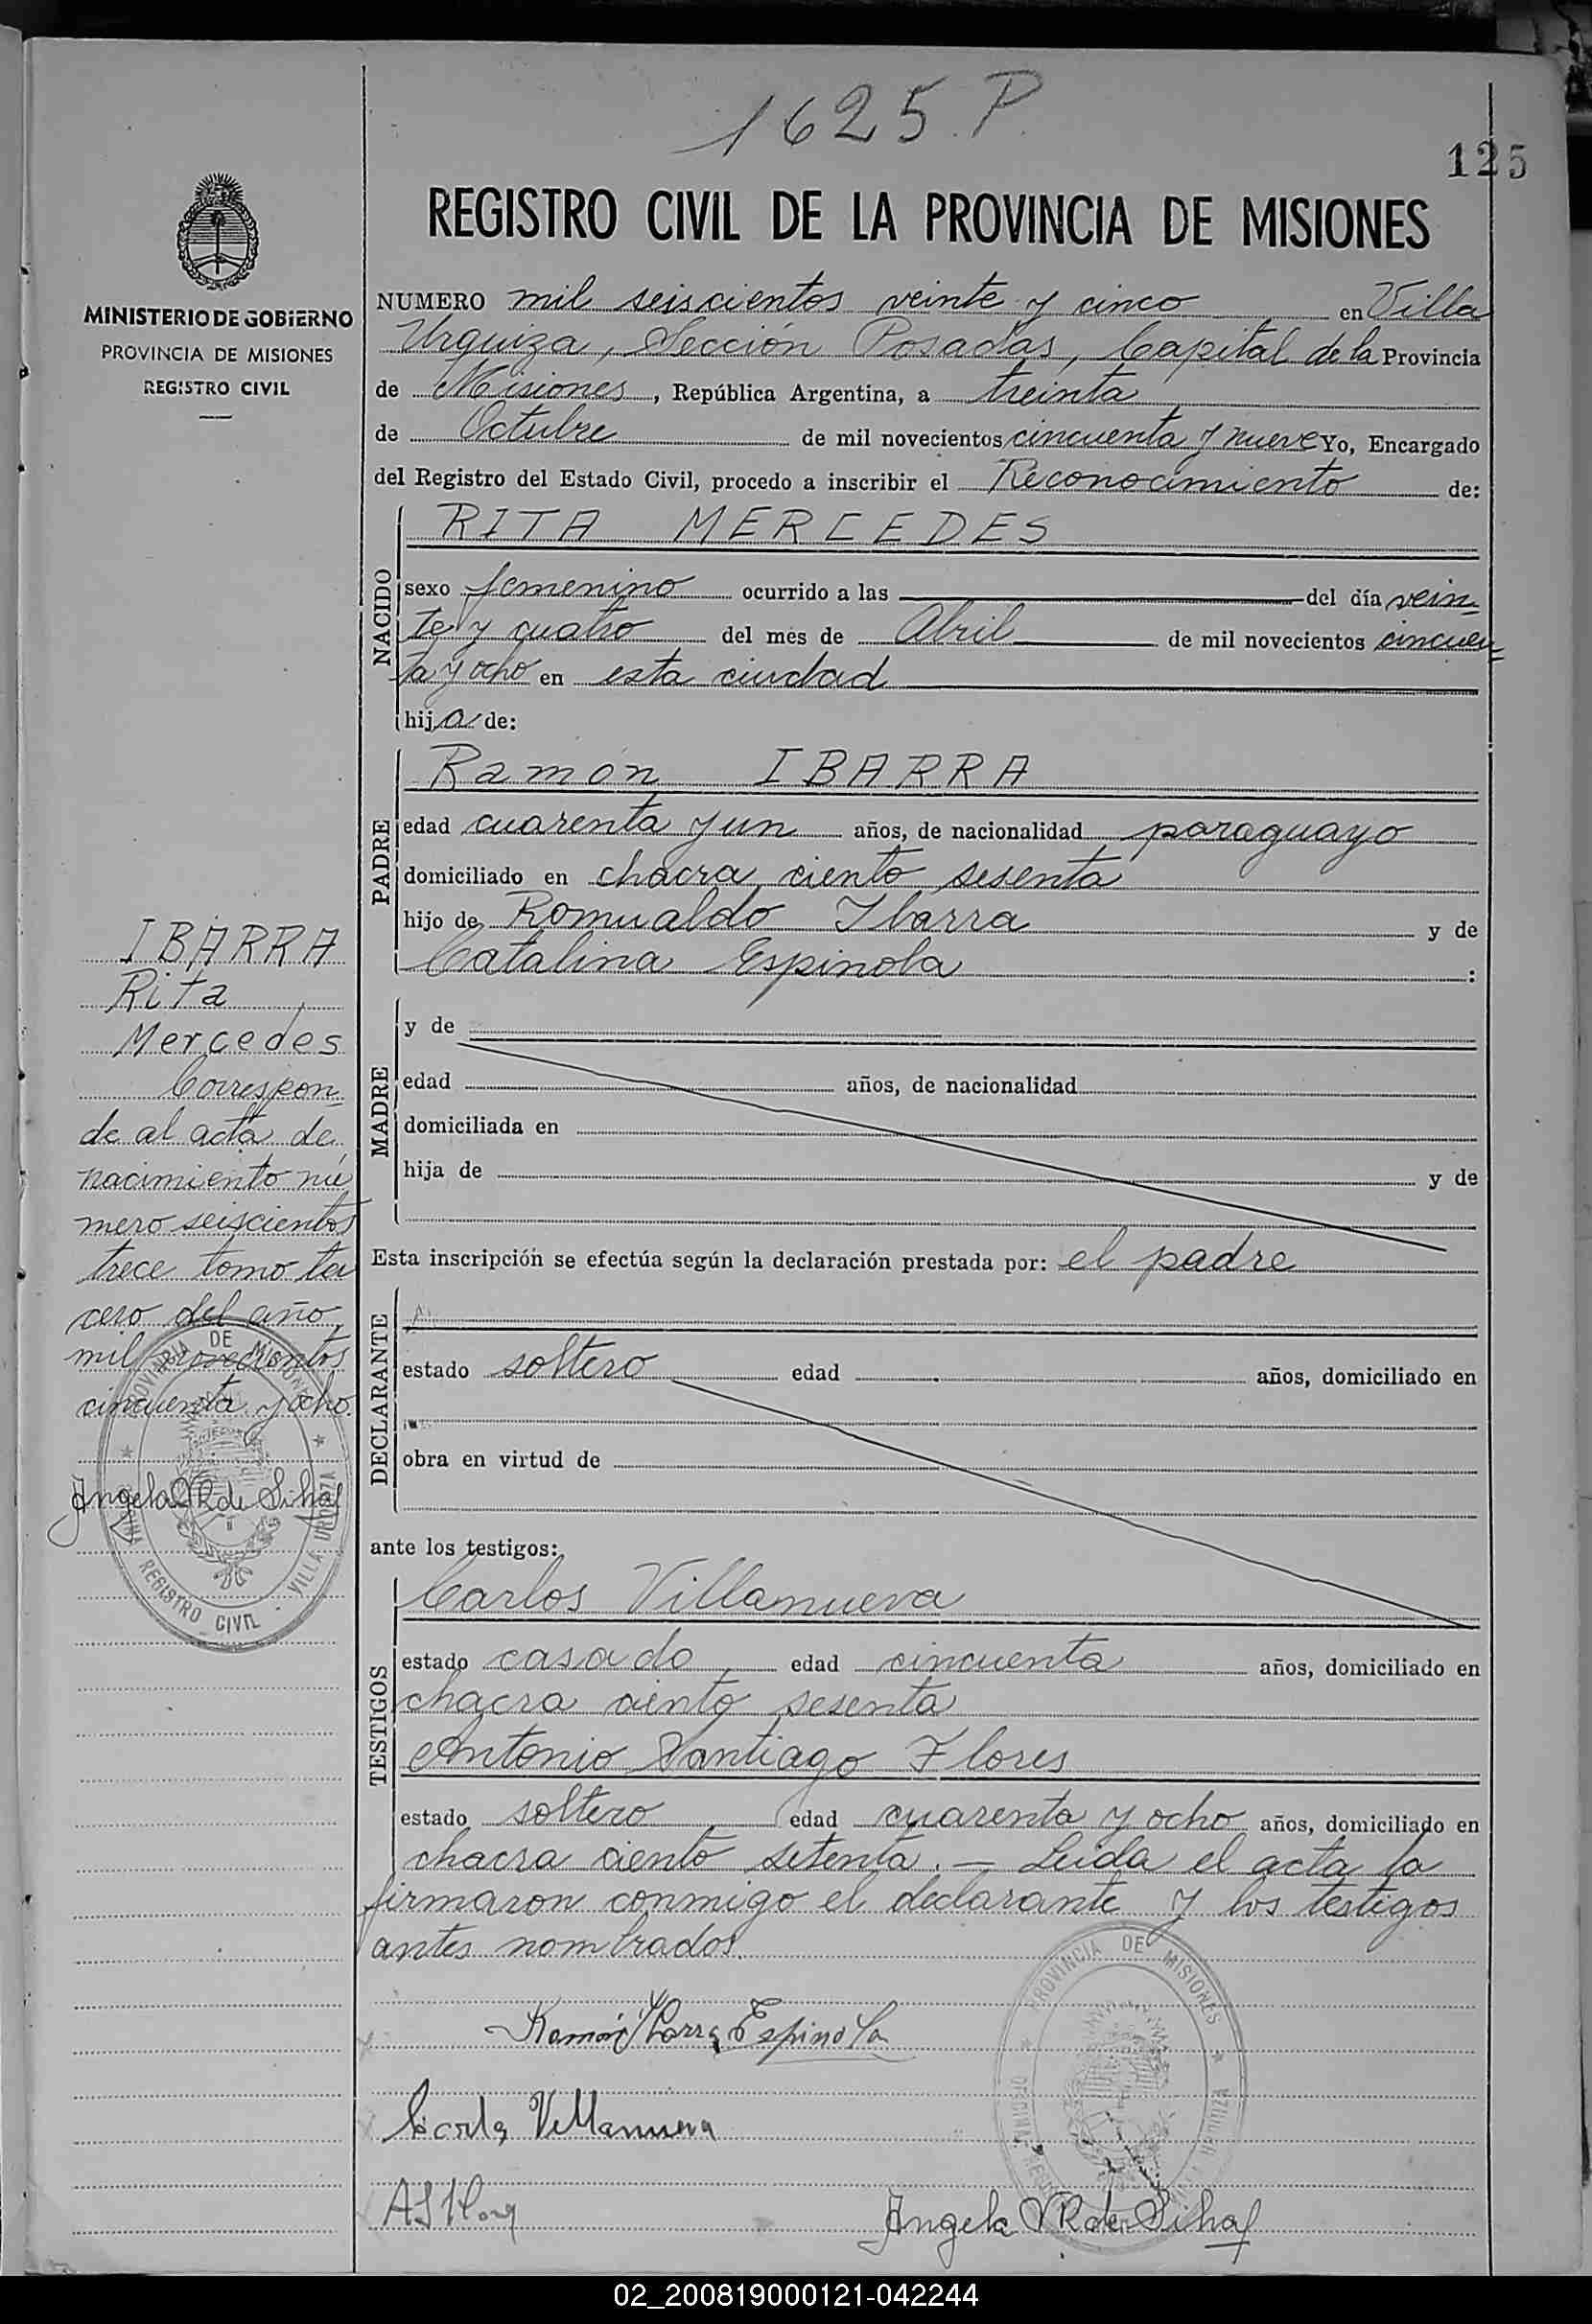 1625 P.
125
REGISTRO CIVIL DE LA PROVINCIA DE MISIONES
MINISTERIO DE GOBIERNO
PROVINCIA DE MISIONES
REGISTRO CIVIL
NUMERO mil seiscientos veinte y cinco en Villa
Urquiza, Sección Posadas, Capital de la Provincia
de Misiones, República Argentina, a treinta
de Octubre de mil novecientos cincuenta y nueve Yo, Encargado
del Registro del Estado Civil, procedo a inscribir el Reconocimiento de:
NACIDO
RITA MERCEDES
sexo femenino ocurrido a las del día vein=
te y cuatro del mes de Abril de mil novecientos cincuen=
ta y ocho en esta ciudad
hija de:
PADRE
Ramón IBARRA
edad cuarenta y un años, de nacionalidad paraguayo
domiciliado en chacra ciento sesenta
hijo de Romualdo Ibarra y de
Catalina Espinola :
MADRE
y de
edad años, de nacionalidad
domiciliada en
hija de y de
Esta inscripción se efectúa según la declaración prestada por: el padre
DECLARANTE
estado soltero edad años, domiciliado en
obra en virtud de
ante los testigos:
TESTIGOS
Carlos Villanueva
estado casado, edad cincuenta años, domiciliado en
chacra ciento sesenta
Antonio Santiago Flores
estado soltero, edad cuarenta y ocho años, domiciliado en
chacra ciento setenta. — Leida el acta la
firmaron conmigo el declarante y los testigos
antes nombrados.
Ramón Ibarra Espinola
Carlos Villanueva
Angela R de
PROVINCIA DE MISIONES
IBARRA
Rita
Mercedes
Correspon=
de al acta de
nacimiento nú
mero seiscientos
trece tomo ter
cero del año
mil novecientos
cincuenta y ocho.
Angela R de
PROVINCIA DE MISIONES
REGISTRO CIVIL - VILLA URQUIZA
02_200819000121-042244